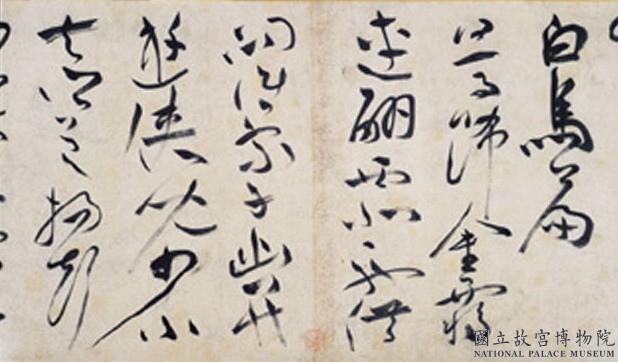 白馬篇
白馬飾金羈
連翩西北馳借
問誰家子幽并
遊俠兒少小
去鄉邑揚聲
國立故宮博物院
NATIONAL PALACE MUSEUM